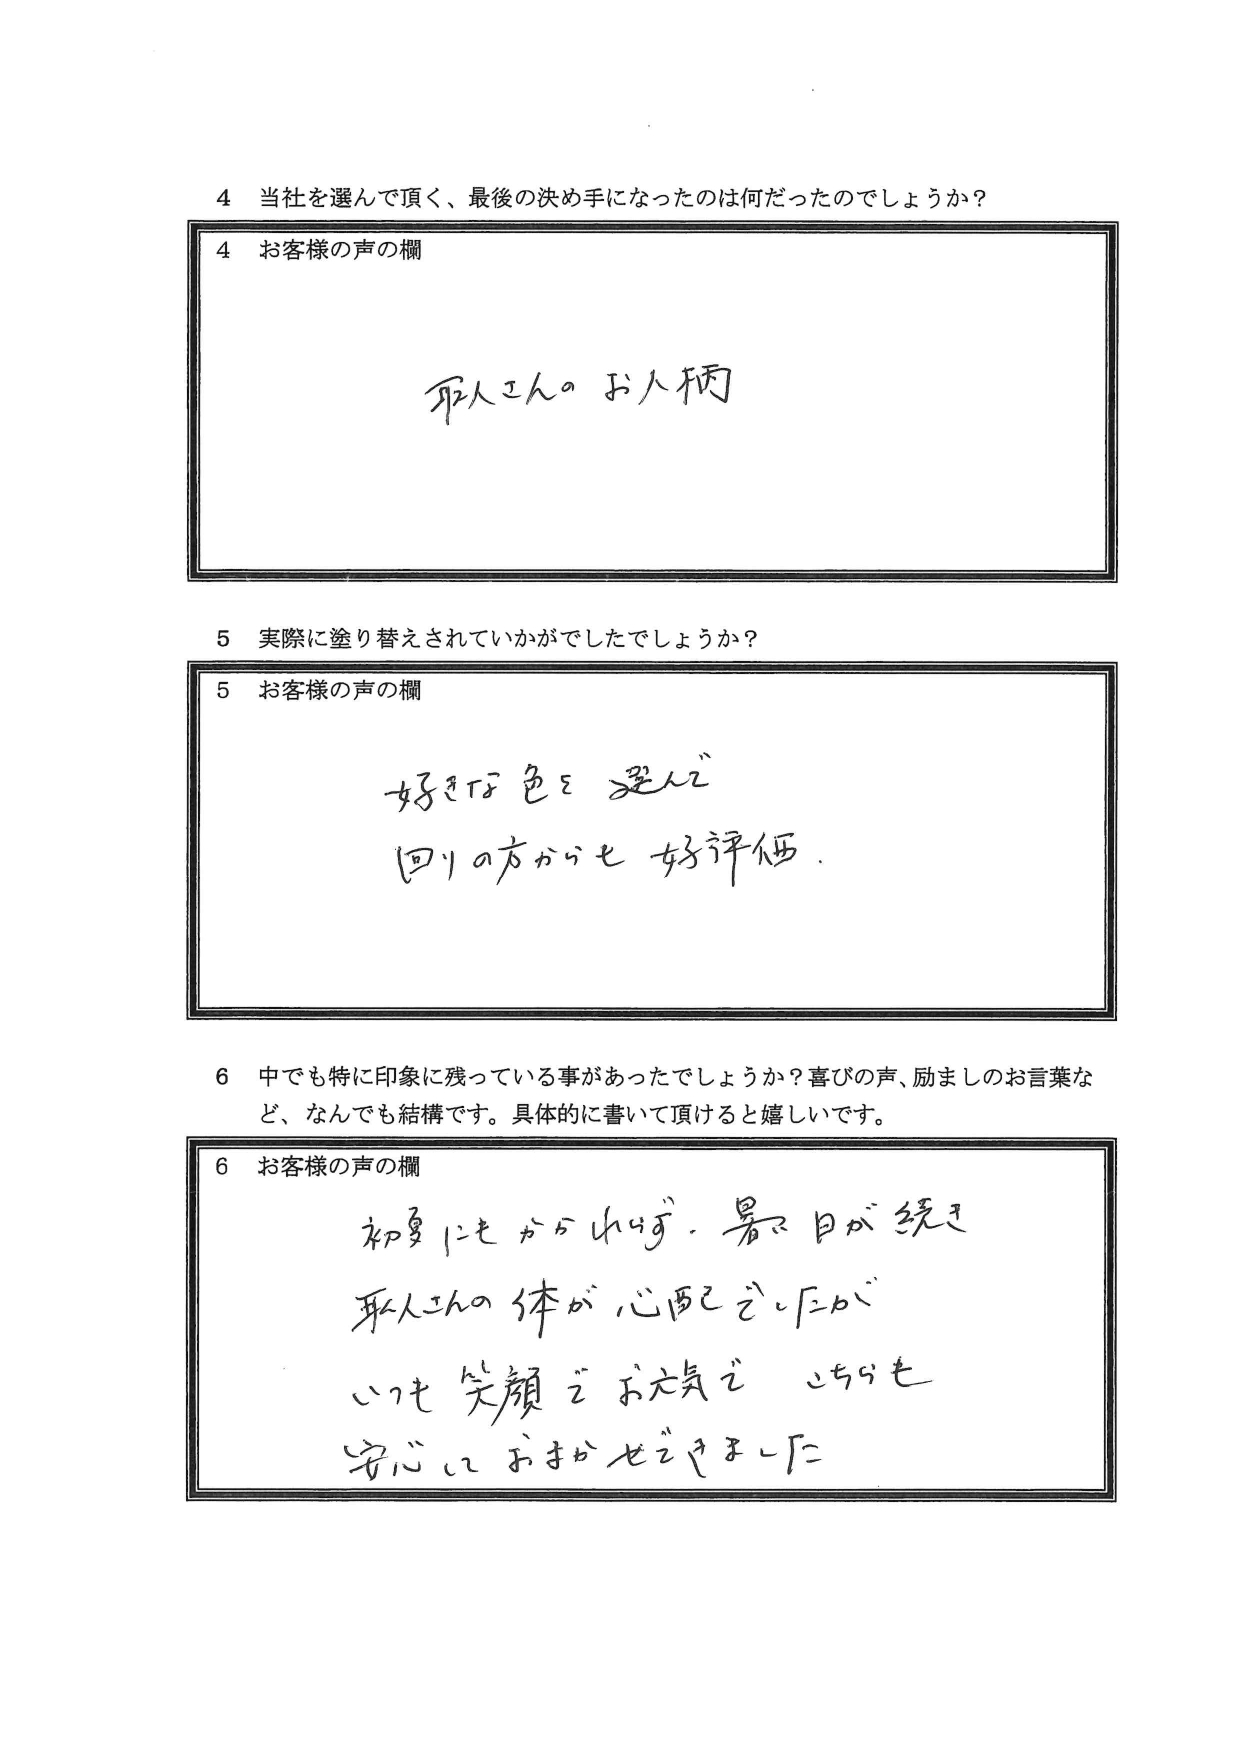 4 当社を選んで頂く、最後の決め手になったのは何だったのでしょうか？
4 お客様の声の欄
職人さんの お人柄
5 実際に塗り替えされていかがでしたでしょうか？
5 お客様の声の欄
好きな色を 選んで
回りの方からも 好評価.
6 中でも特に印象に残っている事があったでしょうか？喜びの声、励ましのお言葉な
ど、なんでも結構です。具体的に書いて頂けると嬉しいです。
6 お客様の声の欄
初夏にもかかわらず、暑い日が続き
職人さんの 体が 心配でしたが
いつも 笑顔で お元気で こちらも
安心して おまかせできました